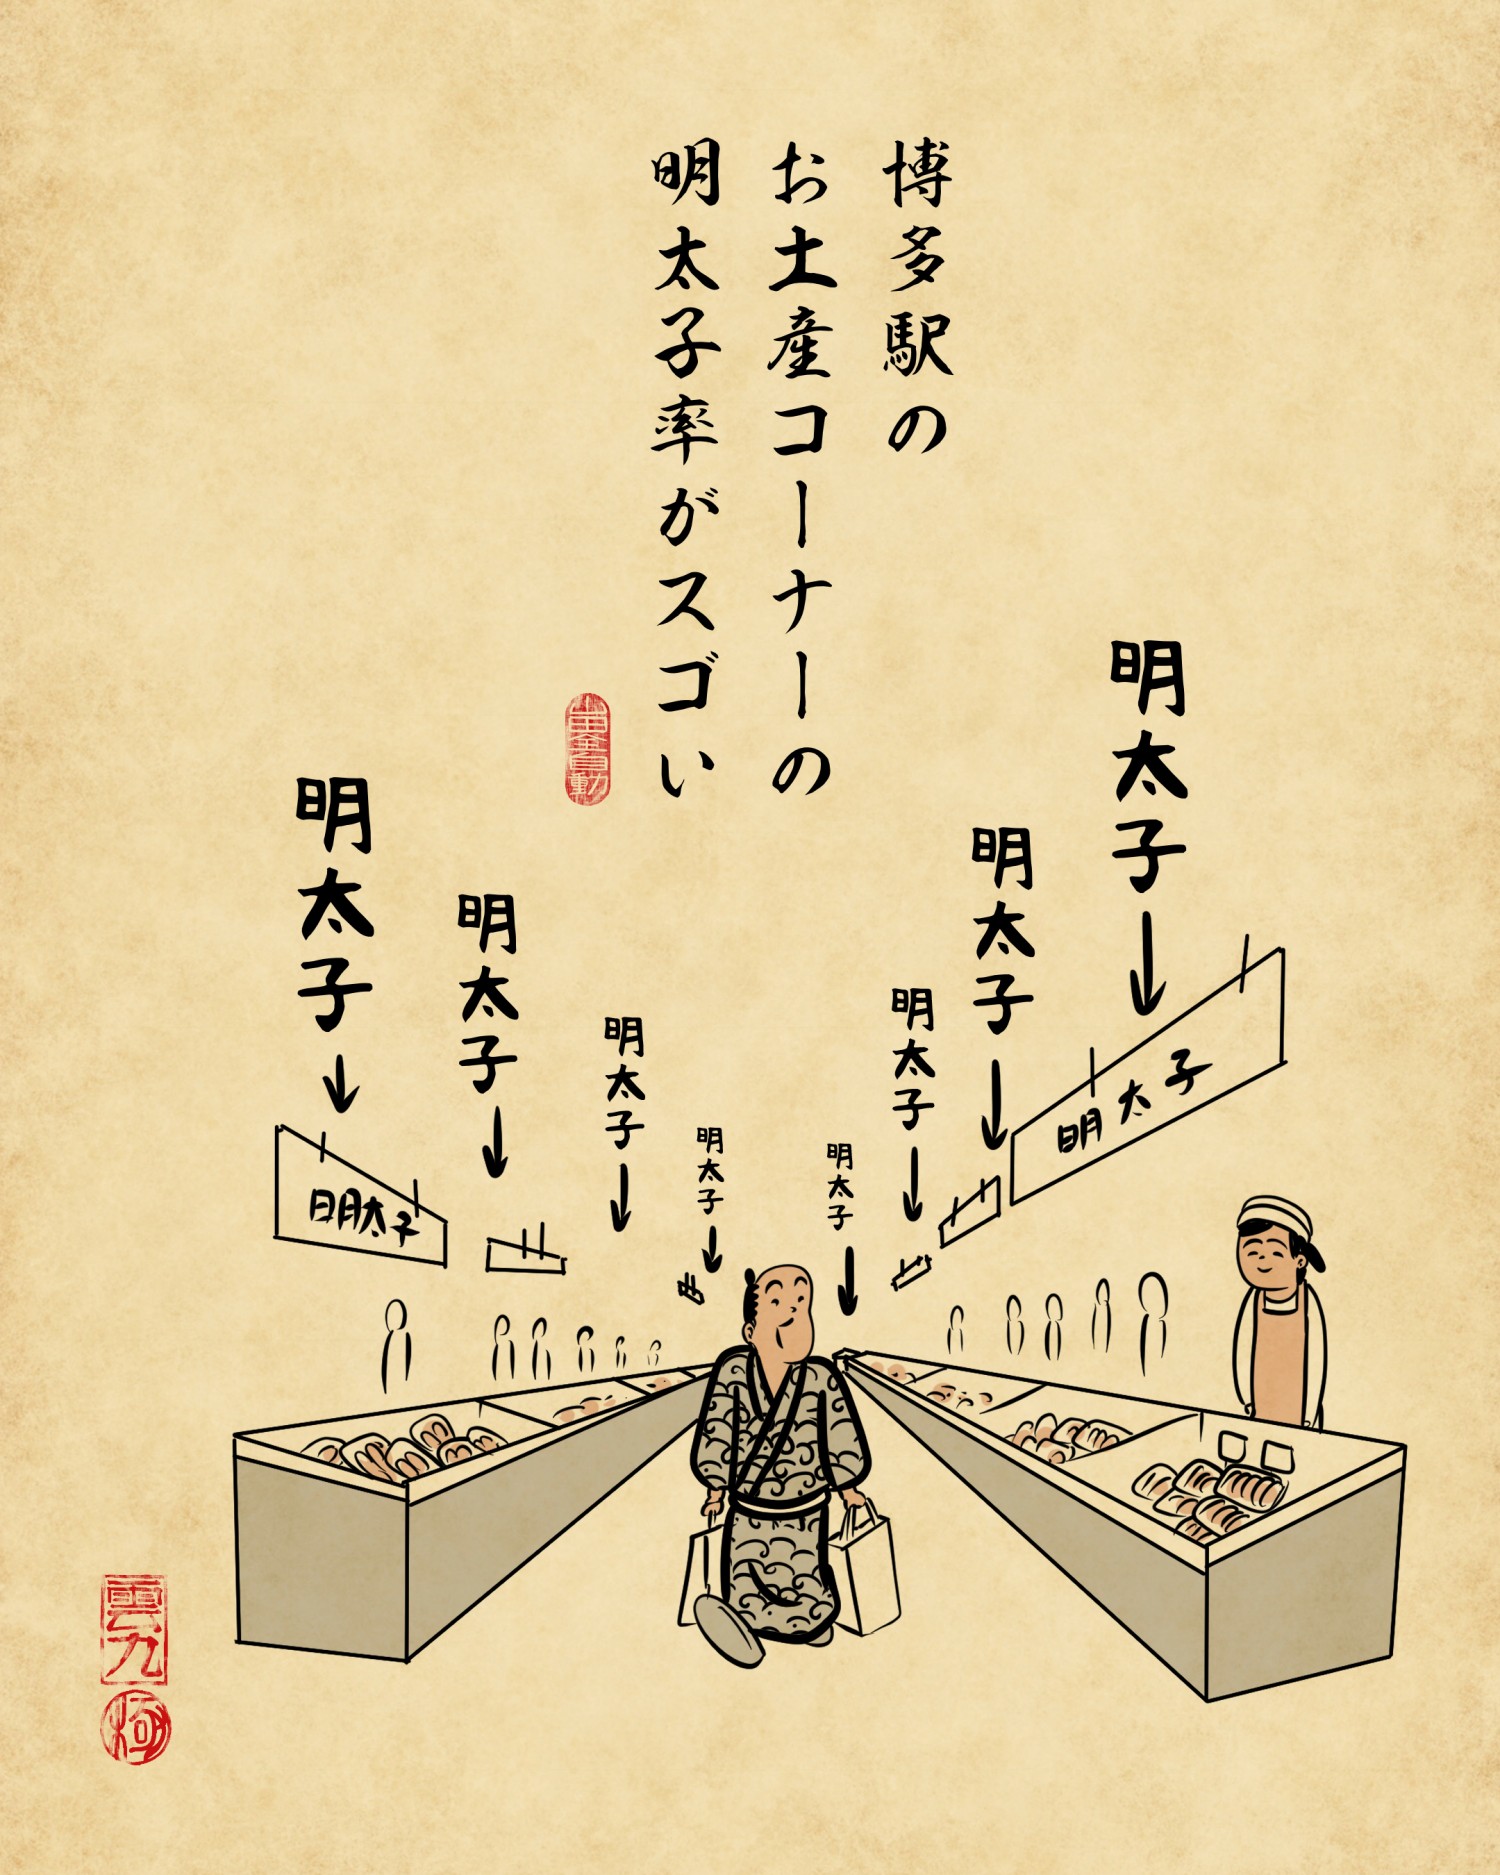 博多駅の
お土産コーナーの
明太子率がスゴい
明太子
明太子
明太子
明太子
明太子
明太子
明太子
明太子
明太子
明太子
雲九
極